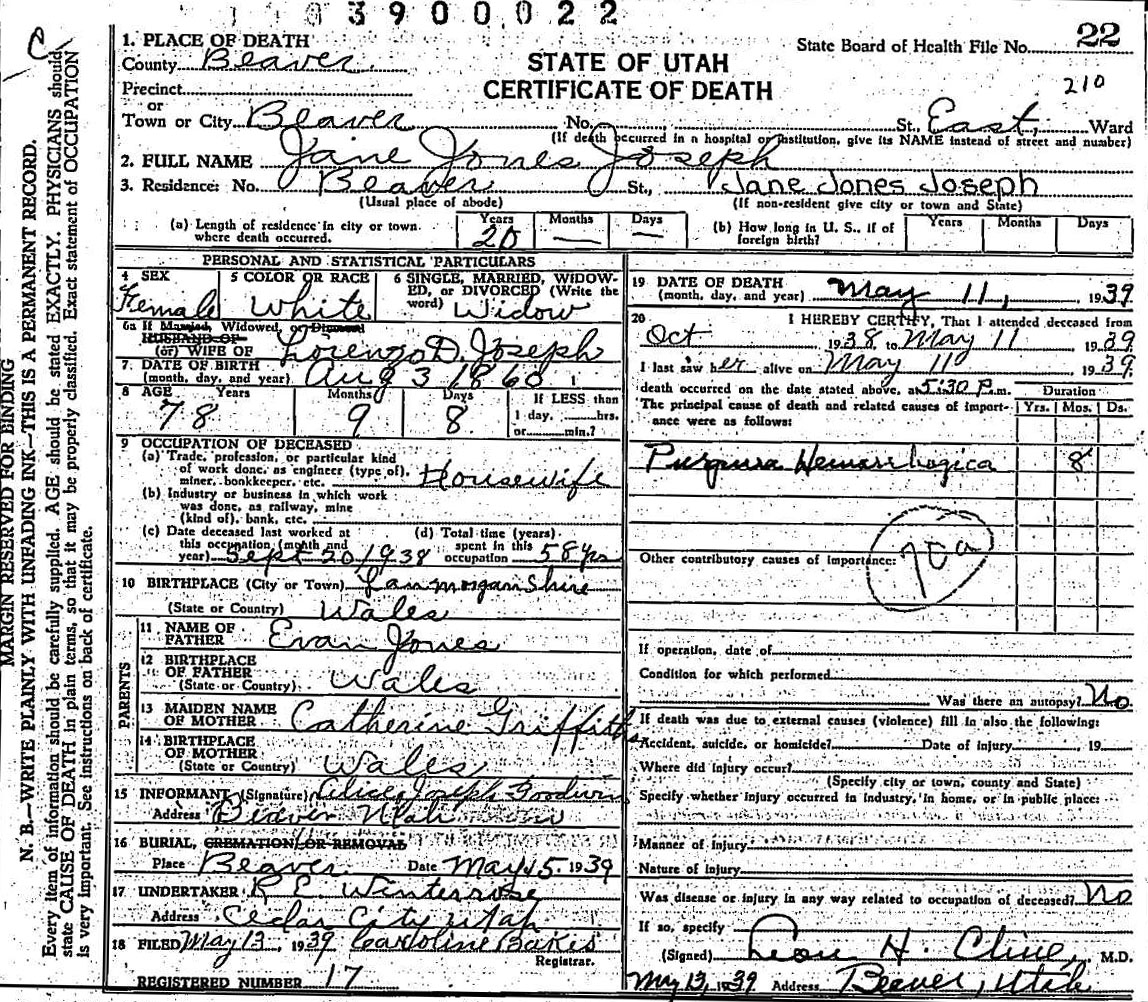 1 1 0 3 9 0 0 0 2 2
C
MARGIN RESERVED FOR BINDING
N. B.—WRITE PLAINLY WITH UNFADING INK—THIS IS A PERMANENT RECORD.
Every item of information should be carefully supplied. AGE should be stated EXACTLY. PHYSICIANS should
state CAUSE OF DEATH in plain terms, so that it may be properly classified. Exact statement of OCCUPATION
is very important. See instructions on back of certificate.
1. PLACE OF DEATH
County Beaver
Precinct
or
Town or City Beaver No. St., East, Ward
STATE OF UTAH
CERTIFICATE OF DEATH
State Board of Health File No. 22
210
(If death occurred in a hospital or institution, give its NAME instead of street and number)
2. FULL NAME Jane Jones Joseph
3. Residence: No. Beaver St., Jane Jones Joseph
(Usual place of abode) (If non-resident give city or town and State)
(a) Length of residence in city or town where death occurred. Years 20 Months — Days —
(b) How long in U. S., if of foreign birth? Years Months Days
PERSONAL AND STATISTICAL PARTICULARS
4 SEX Female
5 COLOR OR RACE White
6 SINGLE, MARRIED, WIDOWED, or DIVORCED (Write the word) Widow
6a If Married, Widowed, or Divorced
HUSBAND OF
(or) WIFE OF Lorenzo D. Joseph
7 DATE OF BIRTH
(month, day, and year) Aug 3 1860
8 AGE Years 78 Months 9 Days 8 If LESS than 1 day, hrs. or min.?
9 OCCUPATION OF DECEASED
(a) Trade, profession, or particular kind
of work done, as engineer (type of),
miner, bookkeeper, etc. Housewife
(b) Industry or business in which work
was done, as railway, mine
(kind of), bank, etc.
(c) Date deceased last worked at
this occupation (month and
year) Sept 20 1938
(d) Total time (years)
spent in this
occupation 58 yrs
10 BIRTHPLACE (City or Town) Lanmorganshire
(State or Country) Wales
PARENTS
11 NAME OF FATHER Evan Jones
12 BIRTHPLACE OF FATHER
(State or Country) Wales
13 MAIDEN NAME OF MOTHER Catherine Griffiths
14 BIRTHPLACE OF MOTHER
(State or Country) Wales
15 INFORMANT (Signature) Alice Joseph Goodwin
Address Beaver Utah
16 BURIAL, CREMATION OR REMOVAL
Place Beaver Date May 15 1939
17 UNDERTAKER R E Winterrose
Address Cedar City Utah
18 FILED May 13, 1939 Caroline Bakes
Registrar.
REGISTERED NUMBER 17
19 DATE OF DEATH
(month, day, and year) May 11, 1939
20 I HEREBY CERTIFY, That I attended deceased from
Oct 1938 to May 11 1939
I last saw her alive on May 11 1939
death occurred on the date stated above, at 5:30 P.m.
Duration
The principal cause of death and related causes of importance were as follows: Yrs. Mos. Ds.
Purpura Hemorrhagica 8
70a
Other contributory causes of importance:
If operation, date of
Condition for which performed
Was there an autopsy? No
If death was due to external causes (violence) fill in also the following:
Accident, suicide, or homicide? Date of injury 19
Where did injury occur?
(Specify city or town, county and State)
Specify whether injury occurred in industry, in home, or in public place:
Manner of injury
Nature of injury
Was disease or injury in any way related to occupation of deceased? No
If so, specify
(Signed) Leon H. Cline, M.D.
May 13, 1939 Address Beaver, Utah